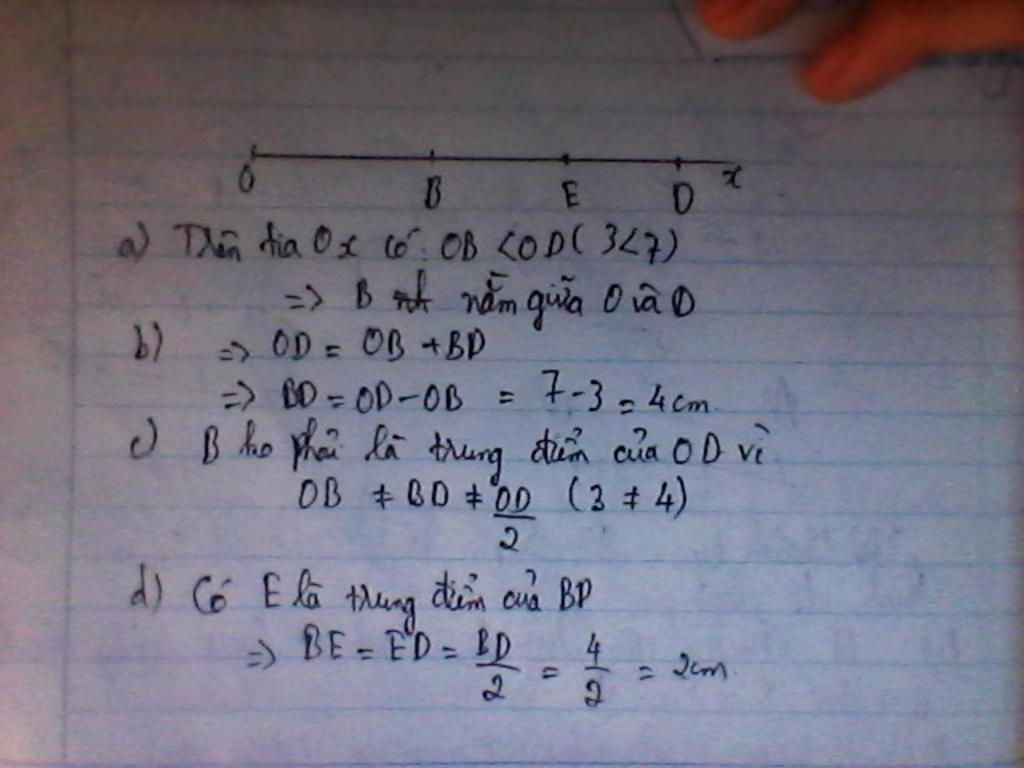 O B E D x
a) Trên tia Ox có: OB < OD ( 3 < 7 )
=> B nằm giữa O và D
b) => OD = OB + BD
=> BD = OD - OB = 7 - 3 = 4 cm.
c) B ko phải là trung điểm của OD vì
OB ≠ BD ≠ OD/2 (3 ≠ 4)
d) Có E là trung điểm của BD
=> BE = ED = BD/2 = 4/2 = 2cm.